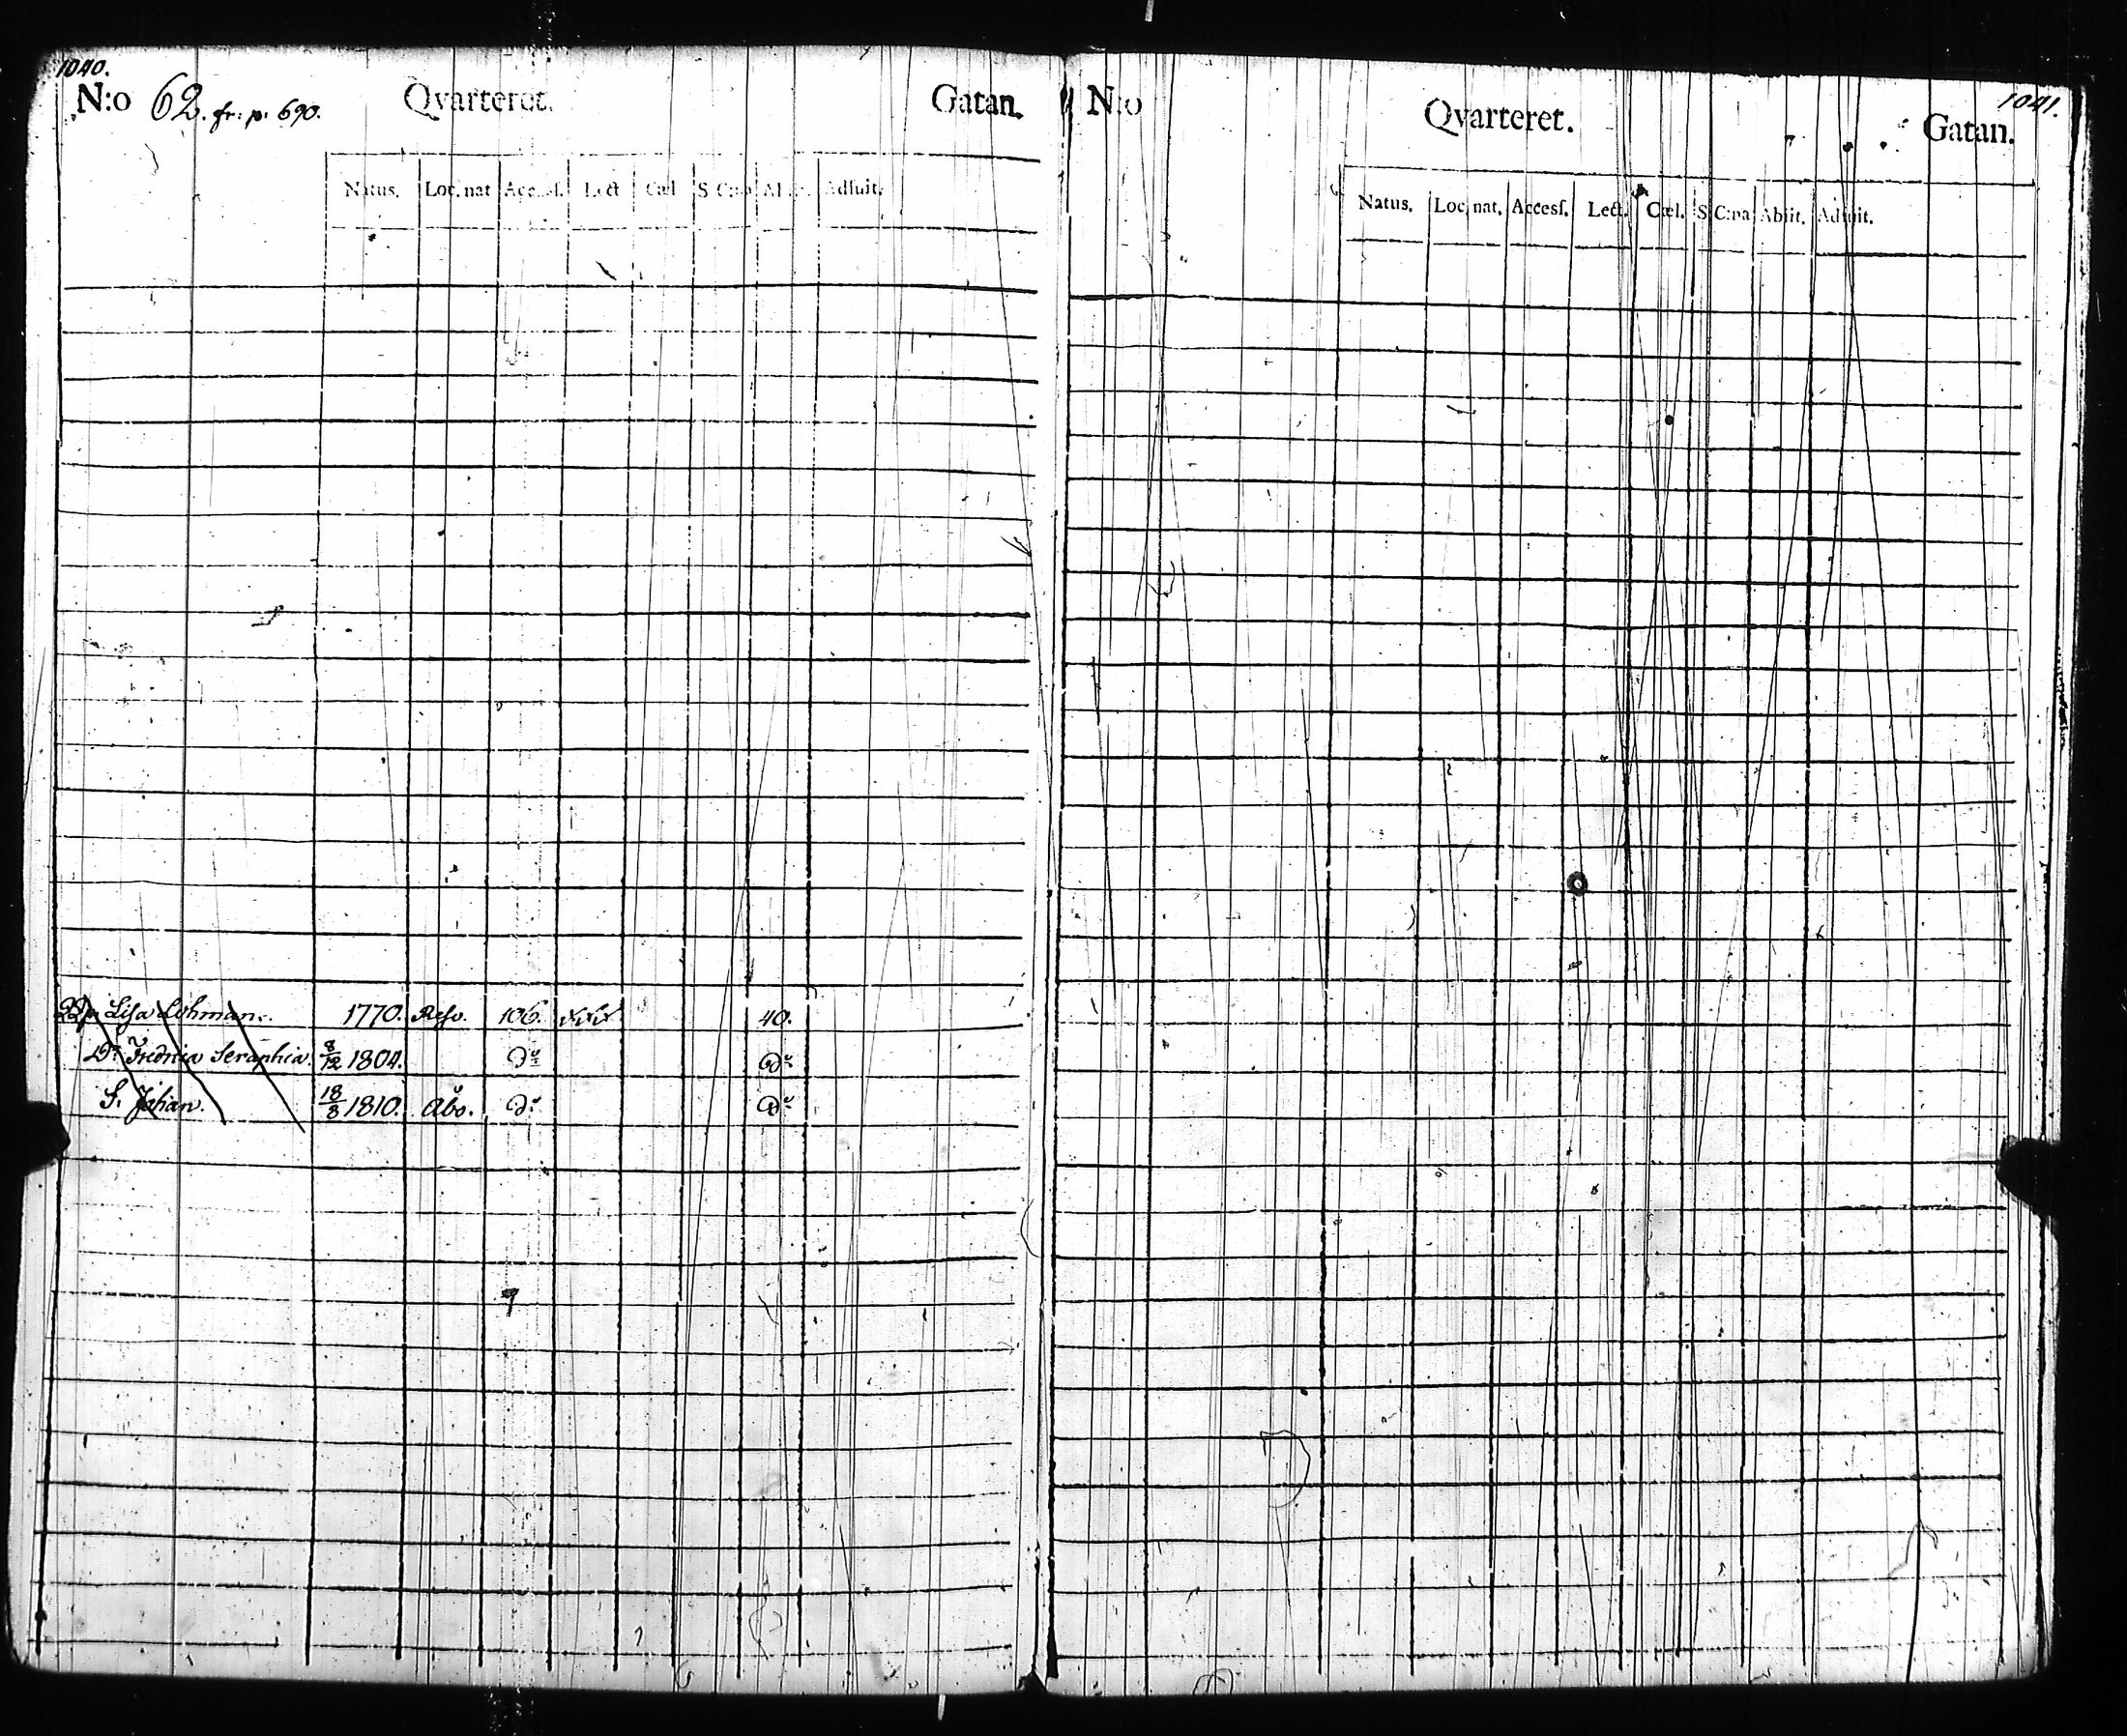 1040.
N:o 62. fr: p. 690. Qvarteret. Gatan.
Natus. Loc. nat Access. Lect Cæl S C:na Abiit. Adsuit.
Lisa Lohman. 1770. Reso. 106. xxx 40.
D. Fredrica Seraphia. 8/12 1804. Do Do
S. Johan. 18/3 1810. Åbo. Do Do
1041.
N:o Qvarteret. Gatan.
Natus. Loc. nat. Access. Lect. Cæl. S C:na Abiit. Adsuit.